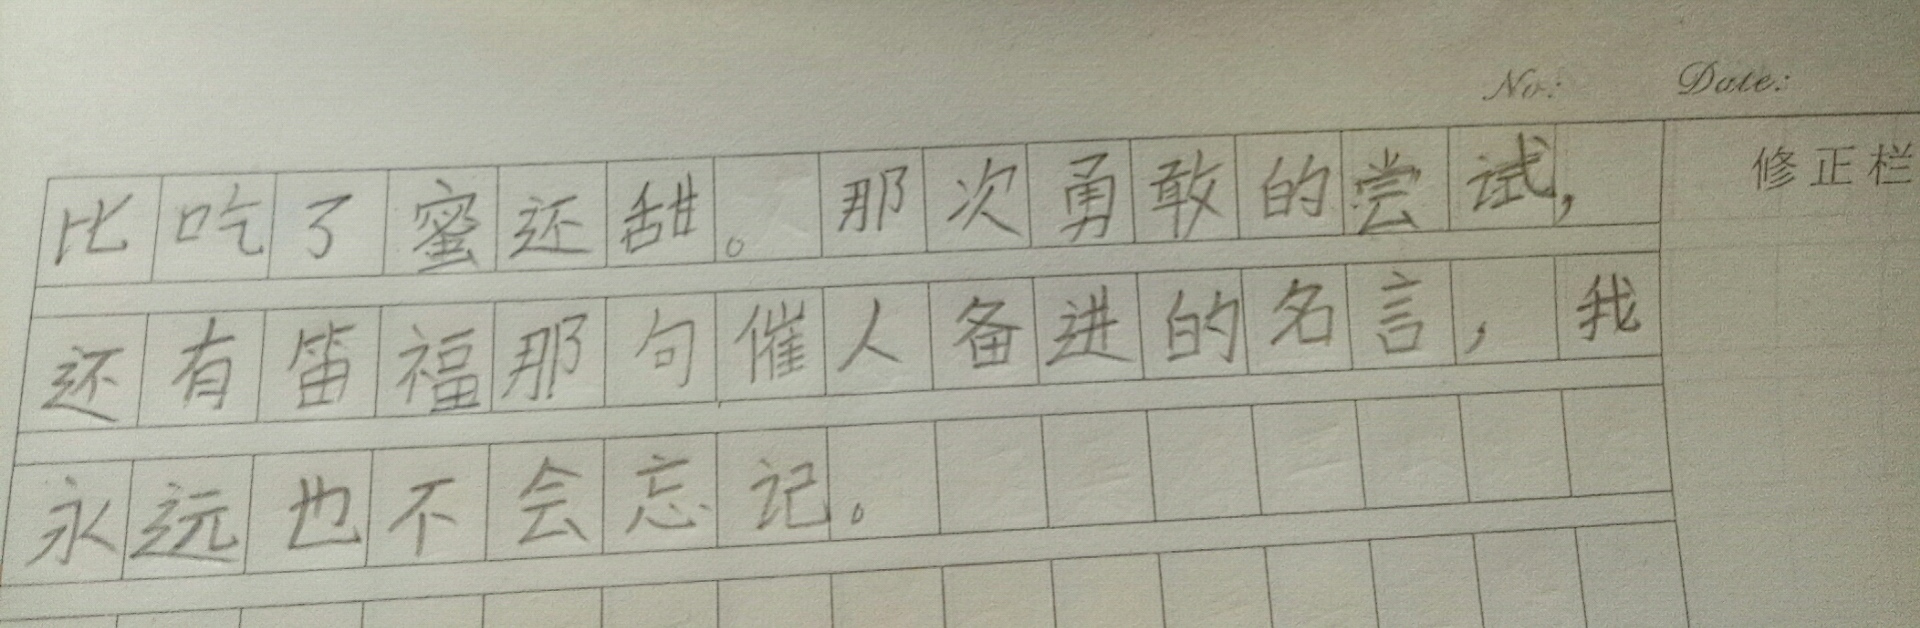 No: Date:
修正栏
比吃了蜜还甜。那次勇敢的尝试,
还有笛福那句催人备进的名言,我
永远也不会忘记。